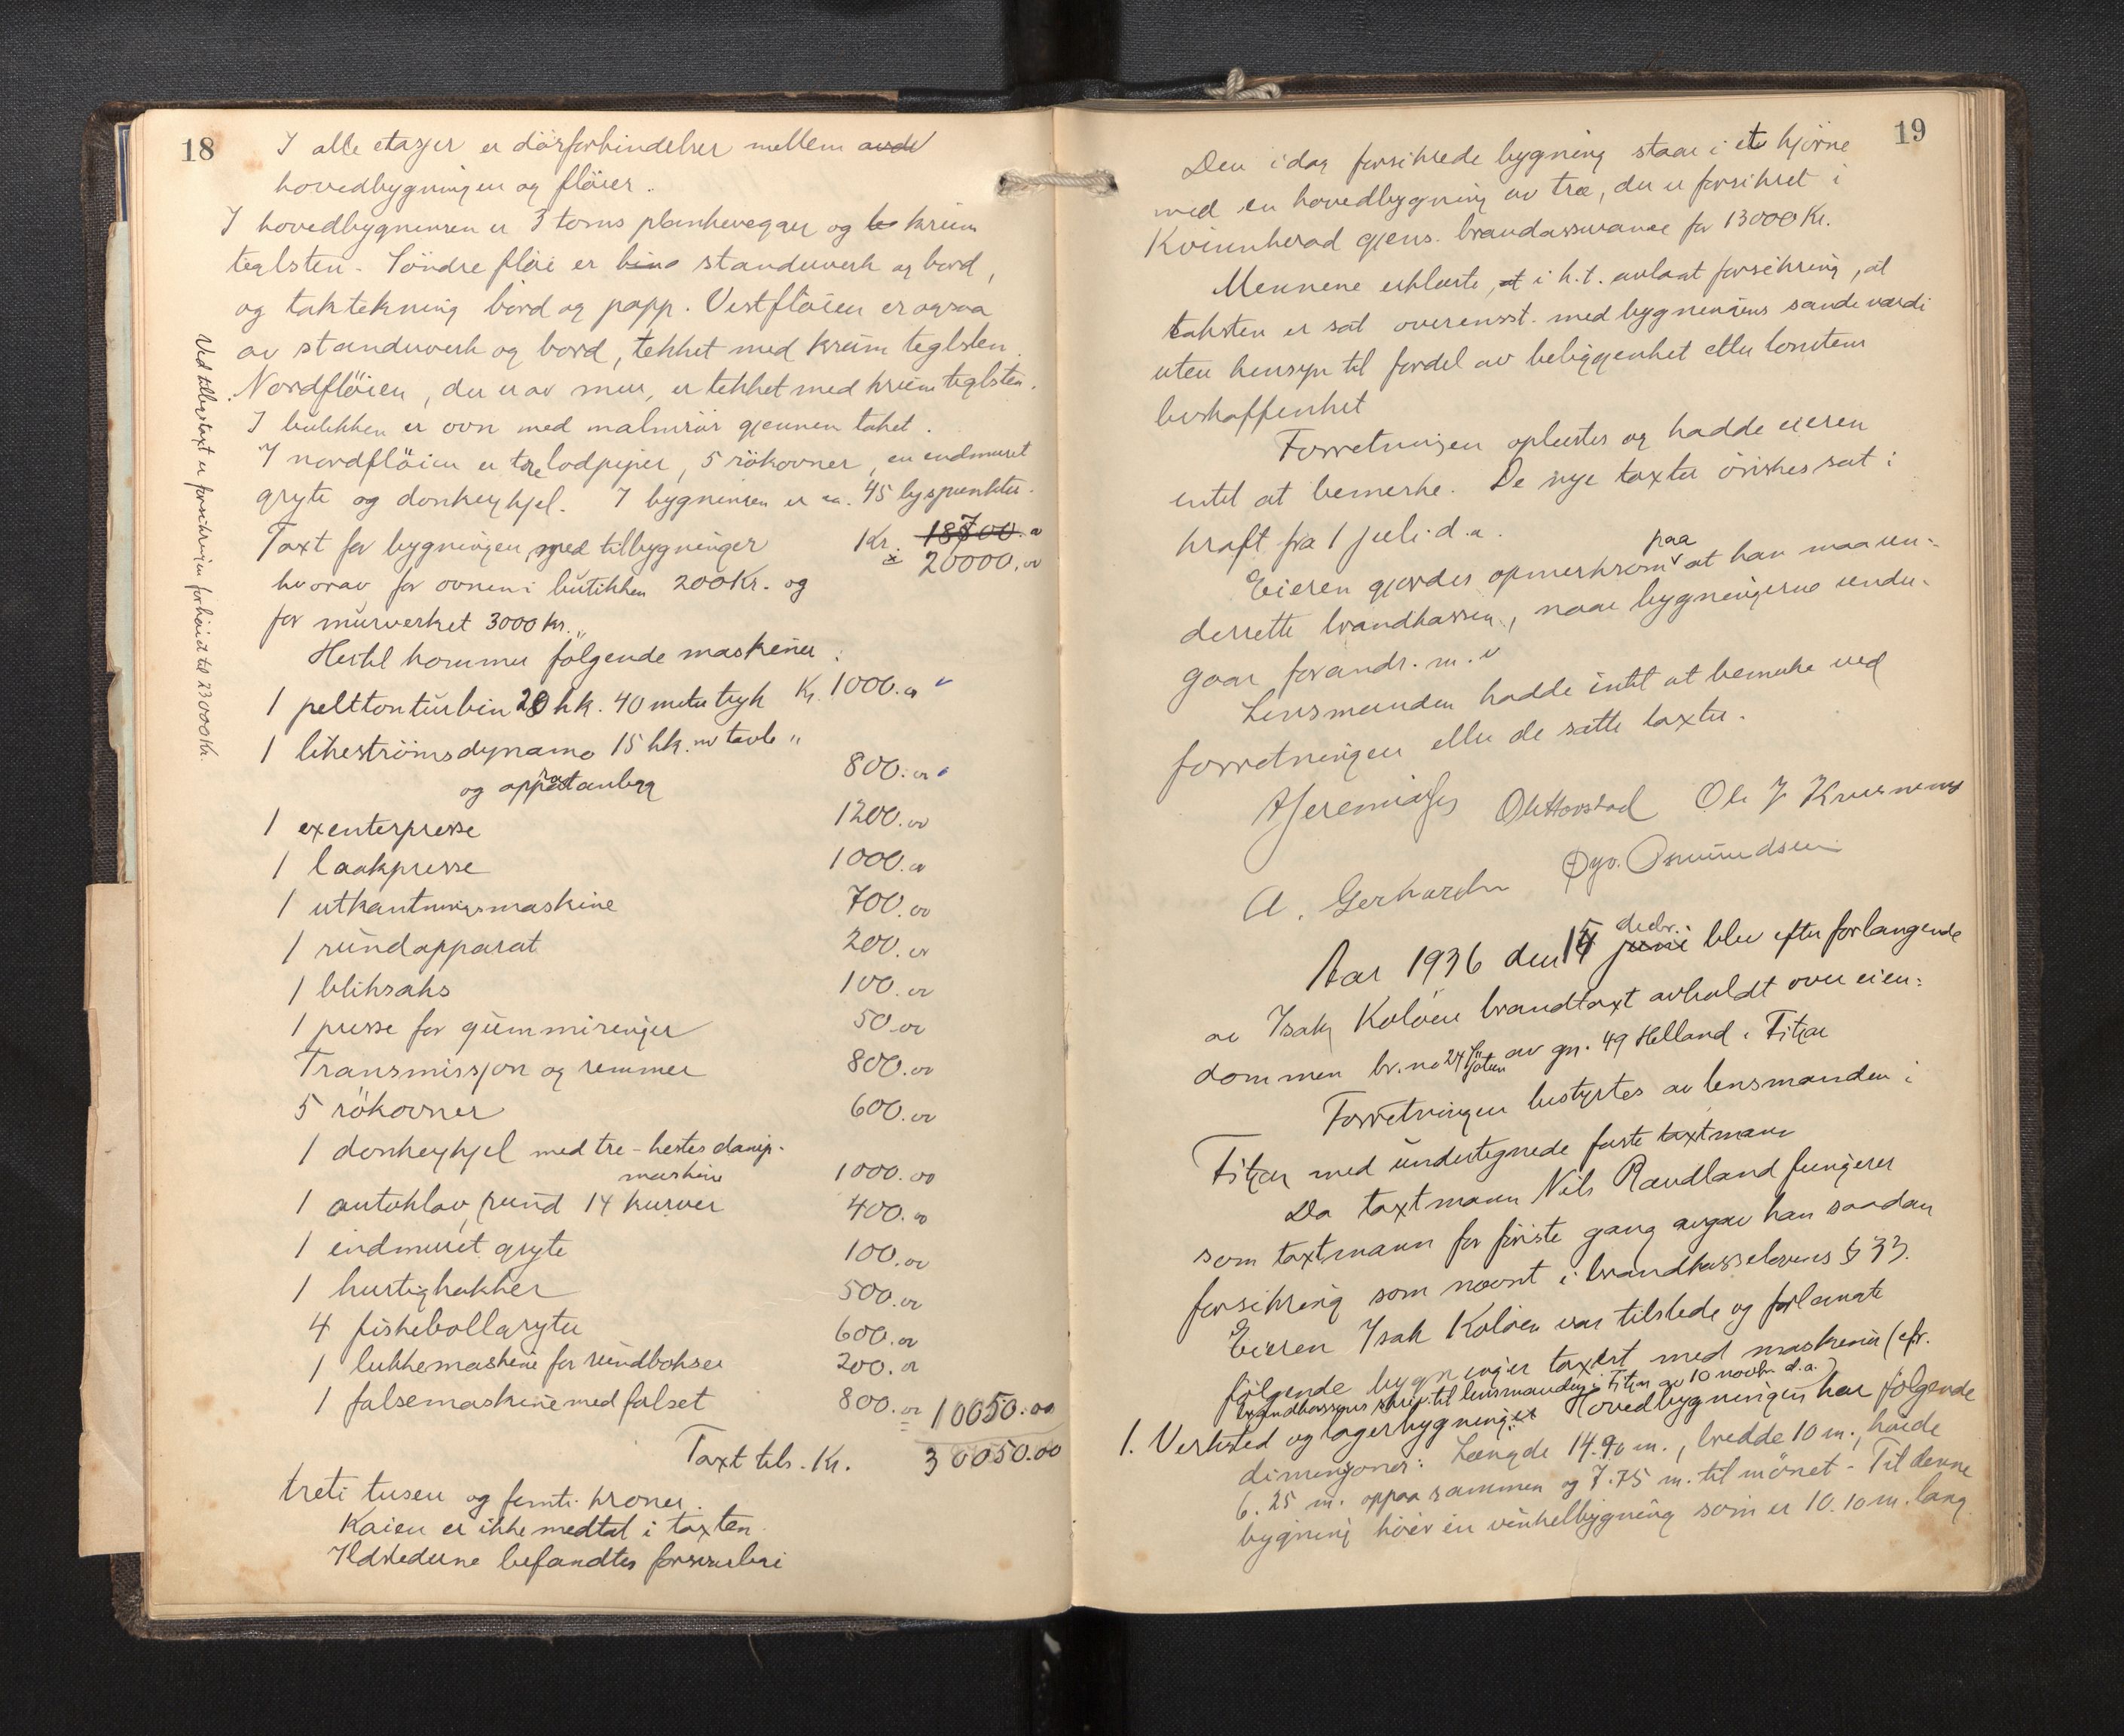 18
I alle etasjer er dörforbindelser mellem
hovedbygningen og flöier.
I hovedbygningen er 3 toms plankevegger og krum
teglsten. Söndre flöi er standerverk og bord,
og taktekning bord og papp. Vestflöien er ogsaa
av standerverk og bord, tekket med krum teglsten.
Nordflöien, der er av mur, er tekket med krum teglsten.
I butikken er ovn med malmrör gjennem taket.
I nordflöien er tre lodpiper, 5 rökovner, en indmuret
gryte og donkeykjel. I bygningen er ca. 45 lyspunkter.
Taxt for bygningen med tilbygninger Kr. 18700.00
20000.00
hvorav for ovnen i butikken 200 Kr. og
for murverket 3000 kr.
Hertil kommer fölgende maskiner:
1 pelttonturbin 20 hk. 40 meter tryk Kr. 1000.00
1 likeströmsdynamo 15 hk. m tavle "
og apparatanlegg 800.00
1 exenterpresse 1200.00
1 laakpresse 1000.00
1 utkantningsmaskine 700.00
1 rundapparat 200.00
1 bliksaks 100.00
1 presse for gummiringer 50.00
Transmissjon og remmer 800.00
5 rökovner 600.00
1 donkeykjel med tre-hestes damp-
maskine 1000.00
1 autoklav, rund 14 kurver 400.00
1 indmuret gryte 100.00
1 hurtighakker 500.00
4 fiskebollegryter 600.00
1 lukkemaskine for rundbokser 200.00
1 falsemaskine med falset 800.00 10050.00
Taxt tils. Kr. 30050.00
treti tusen og femti kroner.
Kaien er ikke medtat i taxten.
Ildstedene befandtes forsvarlige
Ved tilleggstaxt er forsikringen forhöiet til 23000 Kr.
19
Den idag forsikrede bygning staar i et hjörne
med en hovedbygning av træ, der er forsikret i
Kvinnherad gjens. brandassurance for 13000 Kr.
Mennene erklærte, i h.t. avlagt forsikring, at
taksten er sat overensst. med bygningens sande værdi
uten hensyn til fordel av beliggenhet eller tomtens
beskaffenhet
Forretningen oplæstes og hadde eieren
intet at bemerke. De nye taxter önskes sat i
kraft fra 1 juli d.a.
Eieren gjordes opmerksom paa at han maa un-
derrette brandkassen, naar bygningerne under-
gaar forandr. m. v
Lensmanden hadde intet at bemerke ved
forretningen eller de satte taxter.
A. Gerhardsen
Aar 1936 den 15 decbr. blev efter forlangende
av Isak Kolöen brandtaxt avholdt over eien-
dommen br. no 24 av gn. 49 Helland i Fitjar
Forretningen bestyrtes av lensmanden i
Fitjar med undertegnede faste taxtmann
Da taxtmann Nils Rendland fungerer
som taxtmann for förste gang avgav han saadan
forsikring som nævnt i brandkasselovens § 33.
Eieren Isak Kolöen var tilstede og forlangte
fölgende bygninger taxert med maskiner (cfr.
brandkassens skriv. til lensmanden i Fitjar av 10 novbr. d.a.)
1. Verksted og lagerbygning. Hovedbygningen har fölgende
dimensjoner: Længde 14.90 m., bredde 10 m., höide
6.25 m. oppaa rammen og 7.75 m. til mönet. Til denne
bygning hörer en vinkelbygning som er 10.10 m. lang